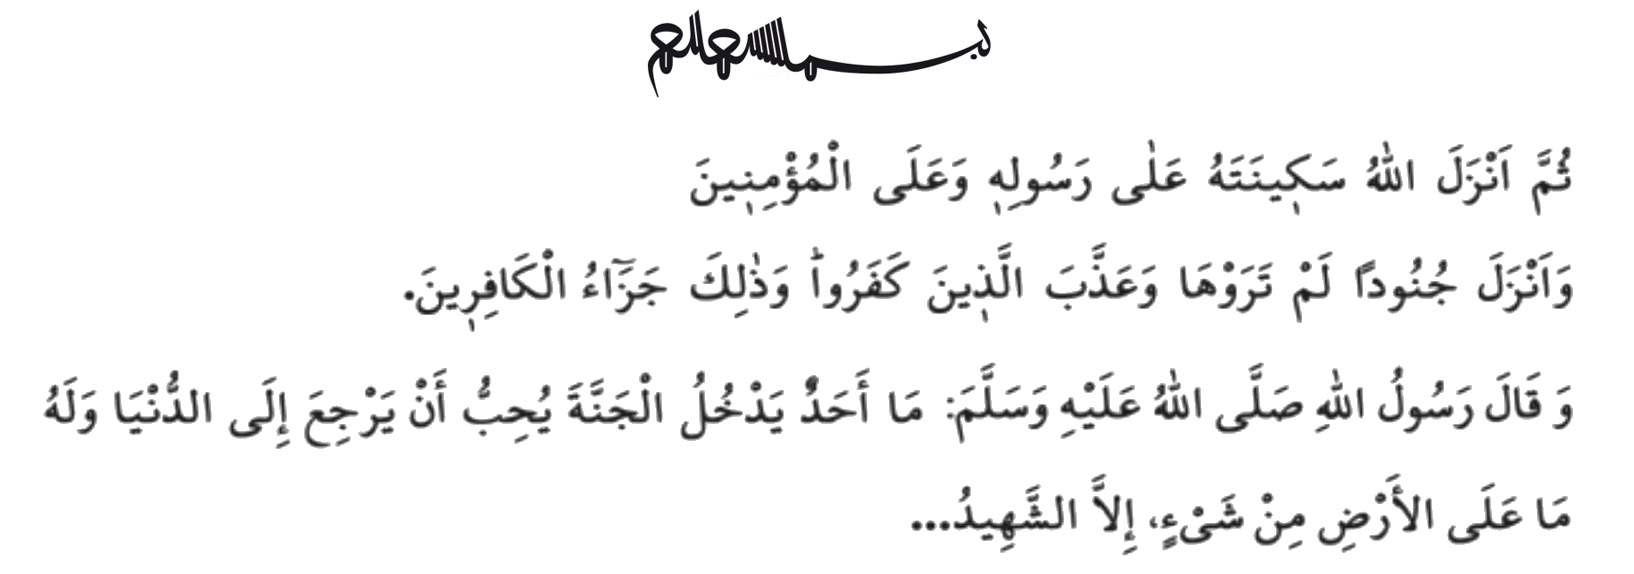 ثُمَّ اَنْزَلَ اللّٰهُ سَكٖينَتَهُ عَلٰى رَسُولِهٖ وَعَلَى الْمُؤْمِنٖينَ
وَاَنْزَلَ جُنُوداً لَمْ تَرَوْهَا وَعَذَّبَ الَّذٖينَ كَفَرُواؕ وَذٰلِكَ جَزَٓاءُ الْكَافِرٖينَ.
وَ قَالَ رَسُولُ اللّٰهِ صَلَّى اللّٰهُ عَلَيْهِ وَسَلَّمَ: مَا أَحَدٌ يَدْخُلُ الْجَنَّةَ يُحِبُّ أَنْ يَرْجِعَ إِلَى الدُّنْيَا وَلَهُ
مَا عَلَى الأَرْضِ مِنْ شَىْءٍ، إِلاَّ الشَّهِيدُ...